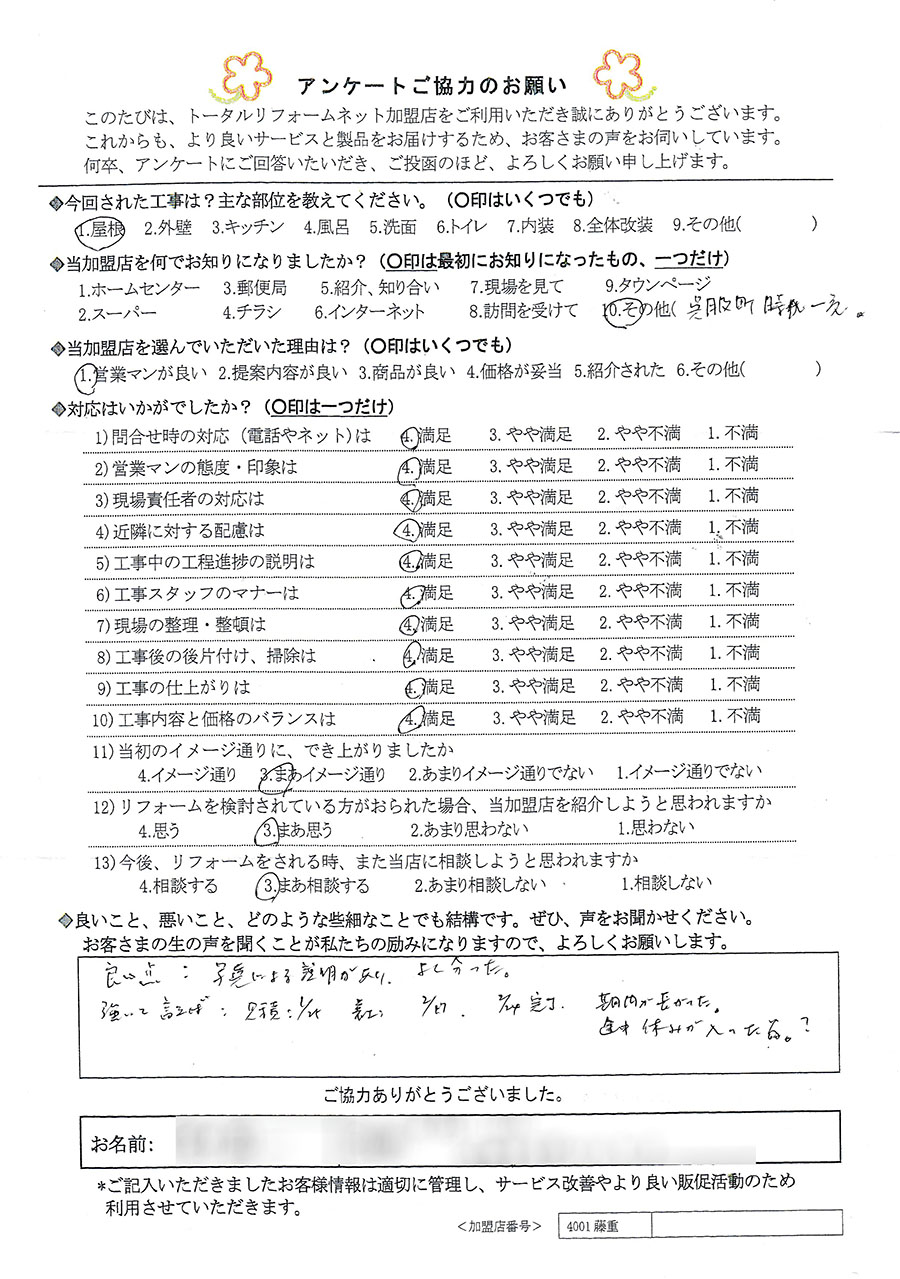 アンケートご協力のお願い
このたびは、トータルリフォームネット加盟店をご利用いただき誠にありがとうございます。
これからも、より良いサービスと製品をお届けするため、お客さまの声をお伺いしています。
何卒、アンケートにご回答いたいだき、ご投函のほど、よろしくお願い申し上げます。
◆今回された工事は？主な部位を教えてください。（〇印はいくつでも）
1.屋根 2.外壁 3.キッチン 4.風呂 5.洗面 6.トイレ 7.内装 8.全体改装 9.その他( )
◆当加盟店を何でお知りになりましたか？（〇印は最初にお知りになったもの、一つだけ）
1.ホームセンター 3.郵便局 5.紹介、知り合い 7.現場を見て 9.タウンページ
2.スーパー 4.チラシ 6.インターネット 8.訪問を受けて 10.その他( 呉服町
◆当加盟店を選んでいただいた理由は？（〇印はいくつでも）
1.営業マンが良い 2.提案内容が良い 3.商品が良い 4.価格が妥当 5.紹介された 6.その他( )
◆対応はいかがでしたか？（〇印は一つだけ）
1)問合せ時の対応（電話やネット)は 4.満足 3.やや満足 2.やや不満 1.不満
2)営業マンの態度・印象は 4.満足 3.やや満足 2.やや不満 1.不満
3)現場責任者の対応は 4.満足 3.やや満足 2.やや不満 1.不満
4)近隣に対する配慮は 4.満足 3.やや満足 2.やや不満 1.不満
5)工事中の工程進捗の説明は 4.満足 3.やや満足 2.やや不満 1.不満
6)工事スタッフのマナーは 4.満足 3.やや満足 2.やや不満 1.不満
7)現場の整理・整頓は 4.満足 3.やや満足 2.やや不満 1.不満
8)工事後の後片付け、掃除は 4.満足 3.やや満足 2.やや不満 1.不満
9)工事の仕上がりは 4.満足 3.やや満足 2.やや不満 1.不満
10)工事内容と価格のバランスは 4.満足 3.やや満足 2.やや不満 1.不満
11)当初のイメージ通りに、でき上がりましたか
4.イメージ通り 3.まあイメージ通り 2.あまりイメージ通りでない 1.イメージ通りでない
12)リフォームを検討されている方がおられた場合、当加盟店を紹介しようと思われますか
4.思う 3.まあ思う 2.あまり思わない 1.思わない
13)今後、リフォームをされる時、また当店に相談しようと思われますか
4.相談する 3.まあ相談する 2.あまり相談しない 1.相談しない
◆良いこと、悪いこと、どのような些細なことでも結構です。ぜひ、声をお聞かせください。
お客さまの生の声を聞くことが私たちの励みになりますので、よろしくお願いします。
良い点：写真による説明があり、よく分った。
強いて言えば：見積：1/24 2/17. 2/24 完了. 期間が長かった。
途中休みが入った為。？
ご協力ありがとうございました。
お名前:
*ご記入いただきましたお客様情報は適切に管理し、サービス改善やより良い販促活動のため
利用させていただきます。
＜加盟店番号＞ 4001藤重